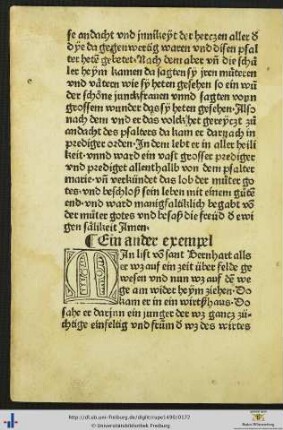 se andacht vnd jnnikeyt der herczen aller d
dye da gegenwertig waren vnd disen psal
ter hetē gebetet. Nach dem aber vñ die schä
ler heym kamen da sagten sy jren müteren
vnd vätern wie sy heten gesehen so ein wü
der schöne junckfrawen vnnd sagten vom
grossem wunder das sy heten gesehen. Also
nach dem vnd er das volck het gereyczt zů
andacht des psalters da kam er darnach in
prediger orden. In dem lebt er in aller heili
keit. vnnd ward ein vast grosser prediger
vnd prediget allenthalb von dem psalter
marie. vñ verkündet das lob der můter go
tes. vnd beschloß sein leben mit einem gůtē
end. vnd ward manigfaltiklich begabt vō
der můter gotes vnd besaß die freüd d ewi
gen sälikeit Amen.
¶ Ein ander exempel
MAn list võ sant Bernhart alls
er wz auf ein zeit über felde ge
wesen vnd nun wz auf dē we
ge am wider heym ziehen. Do
kam er in ein wirtßhaus. Do
sahe er darjnn ein junger der wz gancz zü
chtige einfeltig vnd frum d wz des wirtes
http://dl.ub.uni-freiburg.de/diglit/rupe1490/0172
© Universitätsbibliothek Freiburg
Baden-Württemberg